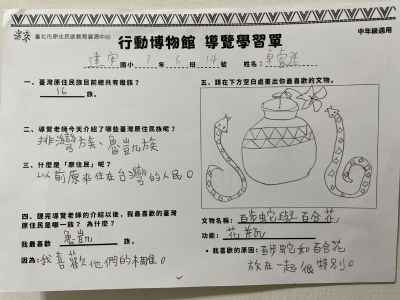 臺北市原住民族教育資源中心
行動博物館 導覽學習單
中年級適用
建安國小 1 年 6 班 14 號 姓名:
一、臺灣原住民族目前總共有幾族?
16 族。
二、導覽老師今天介紹了哪些臺灣原住民族呢?
排灣族、魯凱族
三、什麼是「原住民」呢?
以前原來住在台灣的人民。
四、聽完導覽老師的介紹以後,我最喜歡的臺灣
原住民是哪一族? 為什麼?
我最喜歡 魯凱 族,
因為:我喜歡他們的
五、請在下方空白處畫出你最喜歡的文物。
文物名稱:百步蛇與百合花
功能:花瓶
我喜歡的原因:百步蛇和百合花
放在一起很特別。